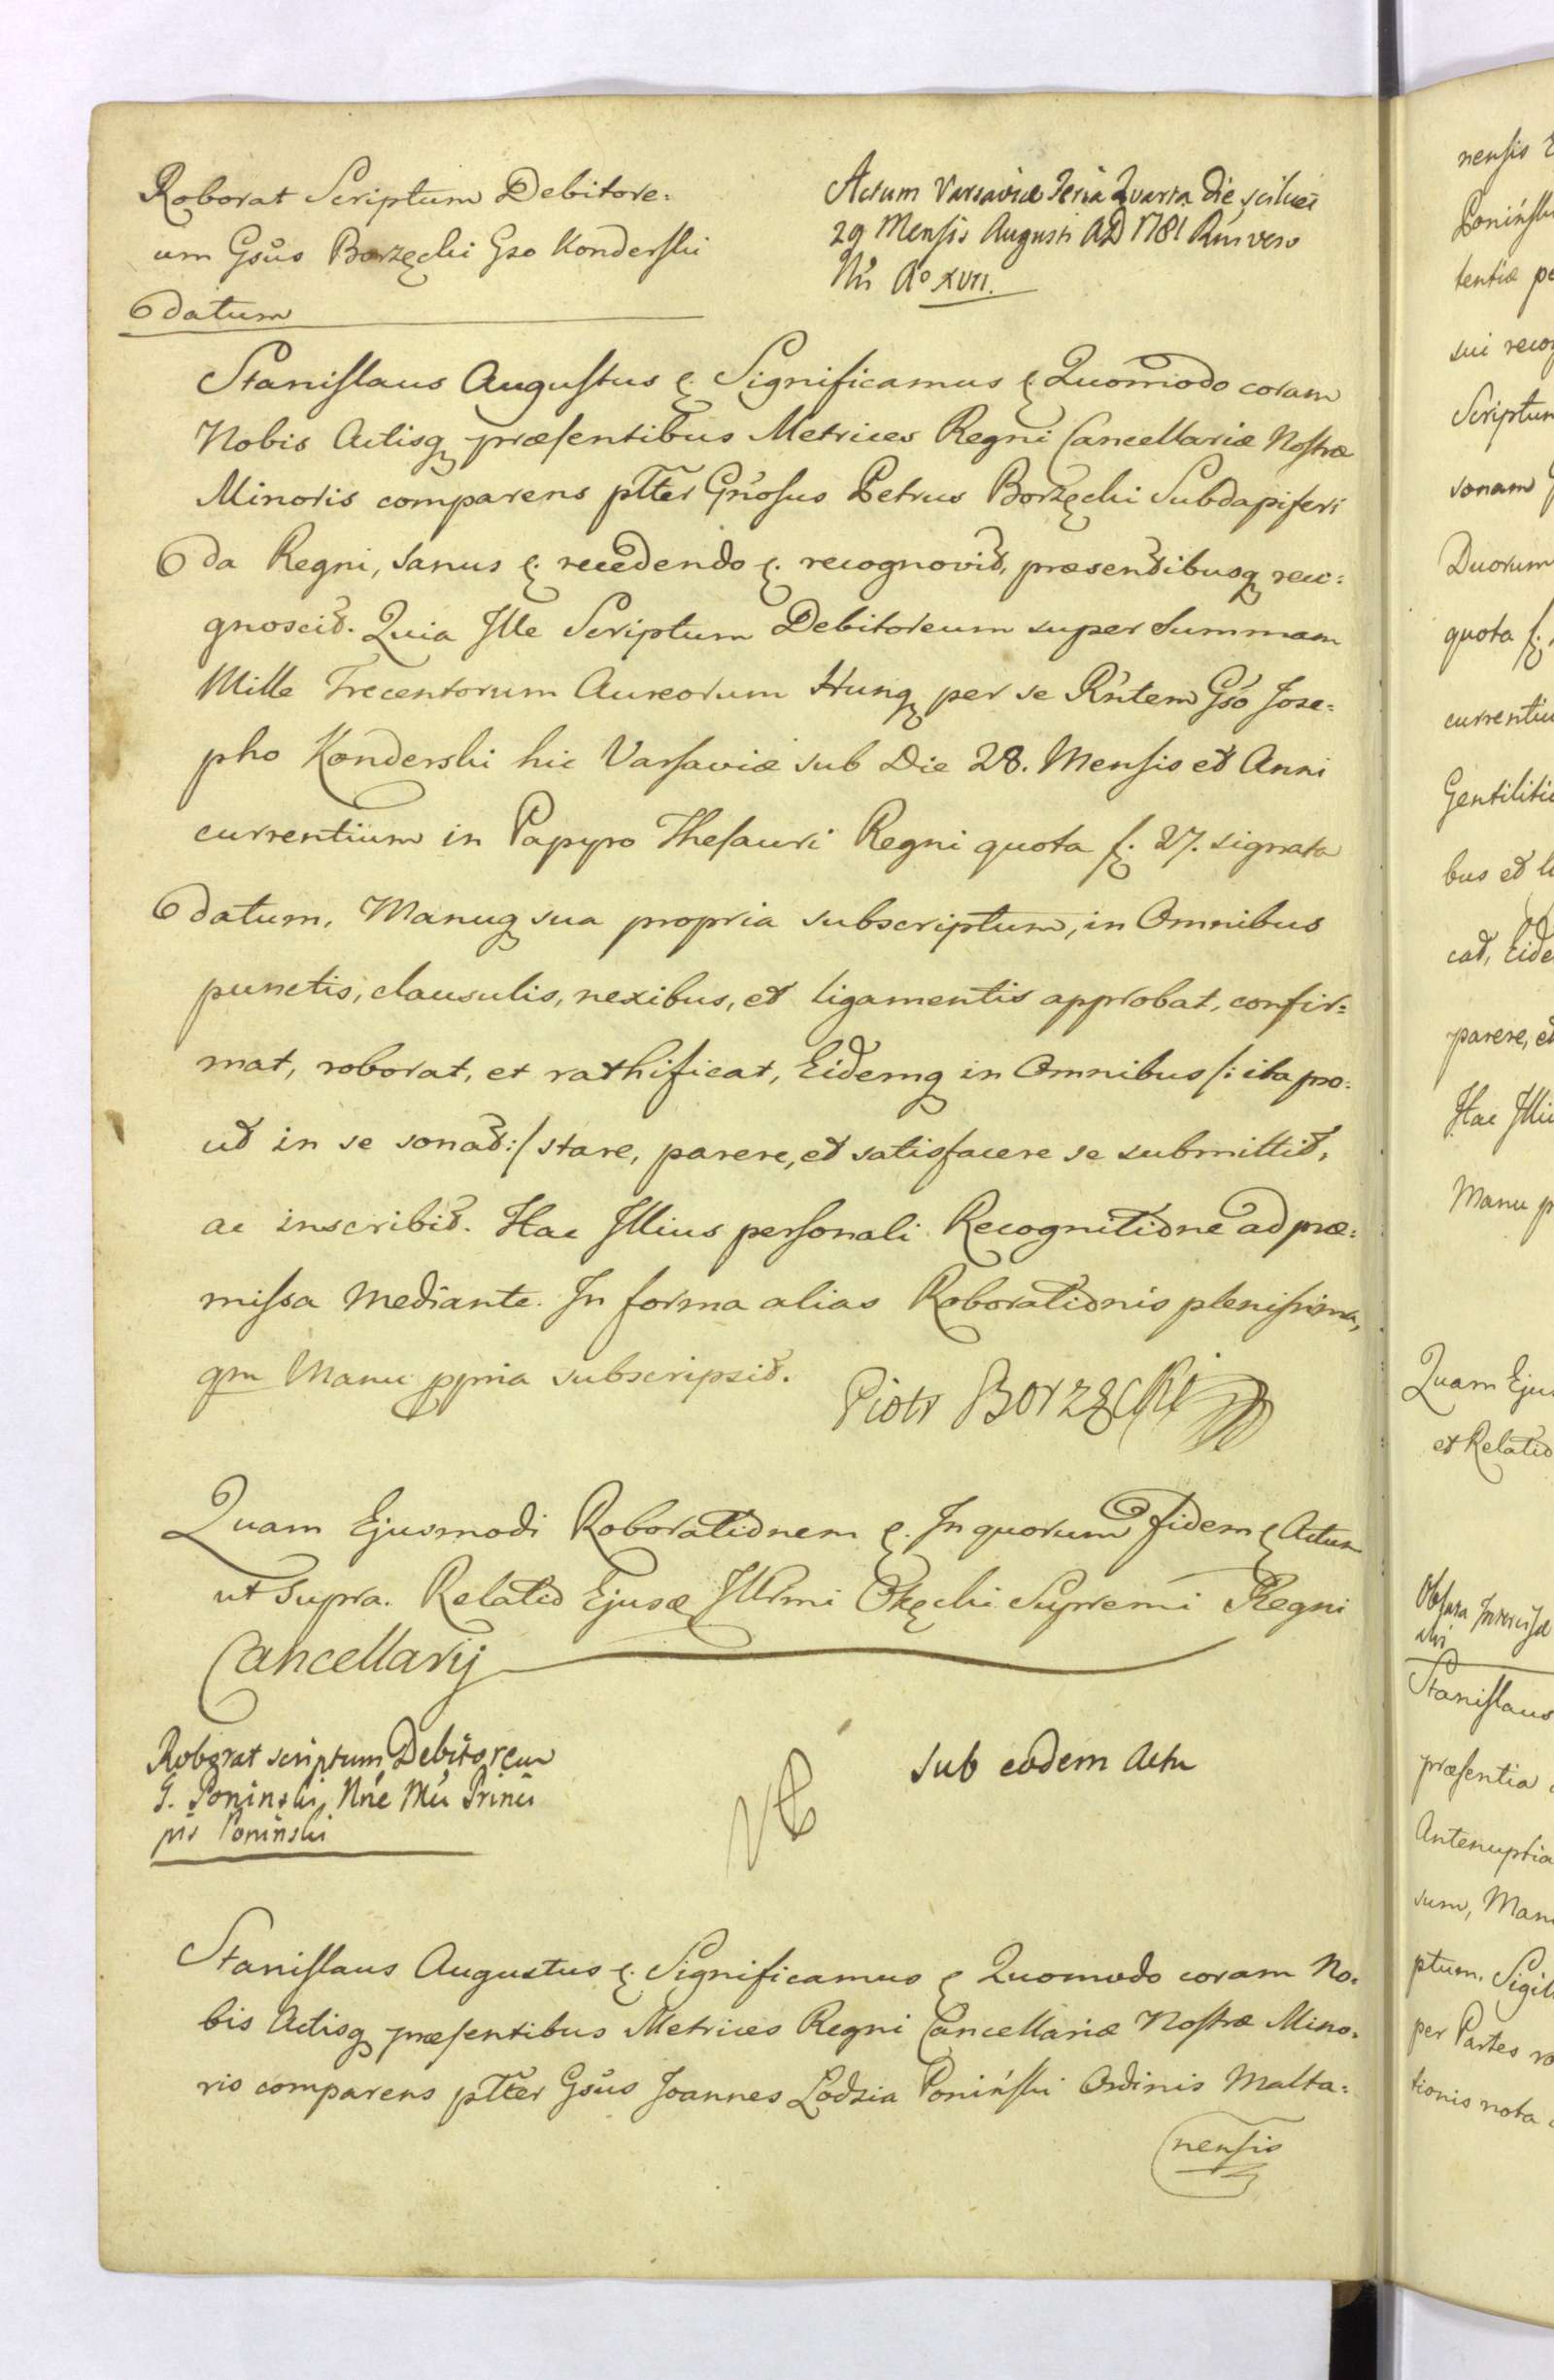 Roborat Scriptum Debitore:
um Gsůs Borzęcki Gso Konderski
datum
Actum Varsaviæ Feria Quarta die scilicet
29 Mensis Augusti AD 1781 Rńi vero
Nri Aº XVII.
Stanislaus Augustus ę. Significamus ę. Quomodo coram
Nobis Actisq præsentibus Metrices Regni Cancellariæ Nostræ
Minoris comparens pltter Gńosus Petrus Borzęcki Subdapiferi
da Regni, sanus ę. recedendo ę. recognovit, præsentibusq reco:
gnoscit. Quia Ille Scriptum Debitoreum super Summam
Mille Trecentorum Aureorum Hung per se Rńtem Gso Jose:
pho Konderski hic Varsaviæ sub Die 28. Mensis et Anni
currentium in Papyro Thesauri Regni quota f. 27. signata
datum, Manuq sua propria subscriptum, in Omnibus
punctis, clausulis, nexibus, et ligamentis approbat, confir=
mat, roborat, et rathificat, Eidemq in Omnibus /: ita pro:
ut in se sonat :/ stare, parere, et satisfacere se submittit,
ac inscribit. Hac Illius personali Recognitione ad præ:
missa mediante. In forma alias Roborationis plenissima,
qm Manu ppria subscripsit.
Piotr Borzęcki
Quam Ejusmodi Roborationem ę. In quorum fidem ę Actum
ut supra. Relatio Ejusæ Illrmi Okęcki Supremi Regni
Cancellarij
Roborat scriptum Debitoreum
G. Poninski, Nńe Mů Princi
pis Poninski
Sub eodem Actu
Stanislaus Augustus ę. Significamus ę Quomodo coram No:
bis Actisq præsentibus Metrices Regni Cancellariæ Nostræ Mino:
ris comparens pltter Gsůs Joannes Lodzia Poniński Ordinis Malta:
nensis
nensis
Ponińsk
tentiæ
sui recog
Scriptum
sonam
Duorum
quota f.
currentiu
Gentilitio
bus et li
cat, Eide
parere, et
Hac Illiu
Manu p
Quam Ejus
et Relatio
Stanislaus
præsentia
Antenuptia
sum, Man
ptum, Sigil
per Partes
tionis nota